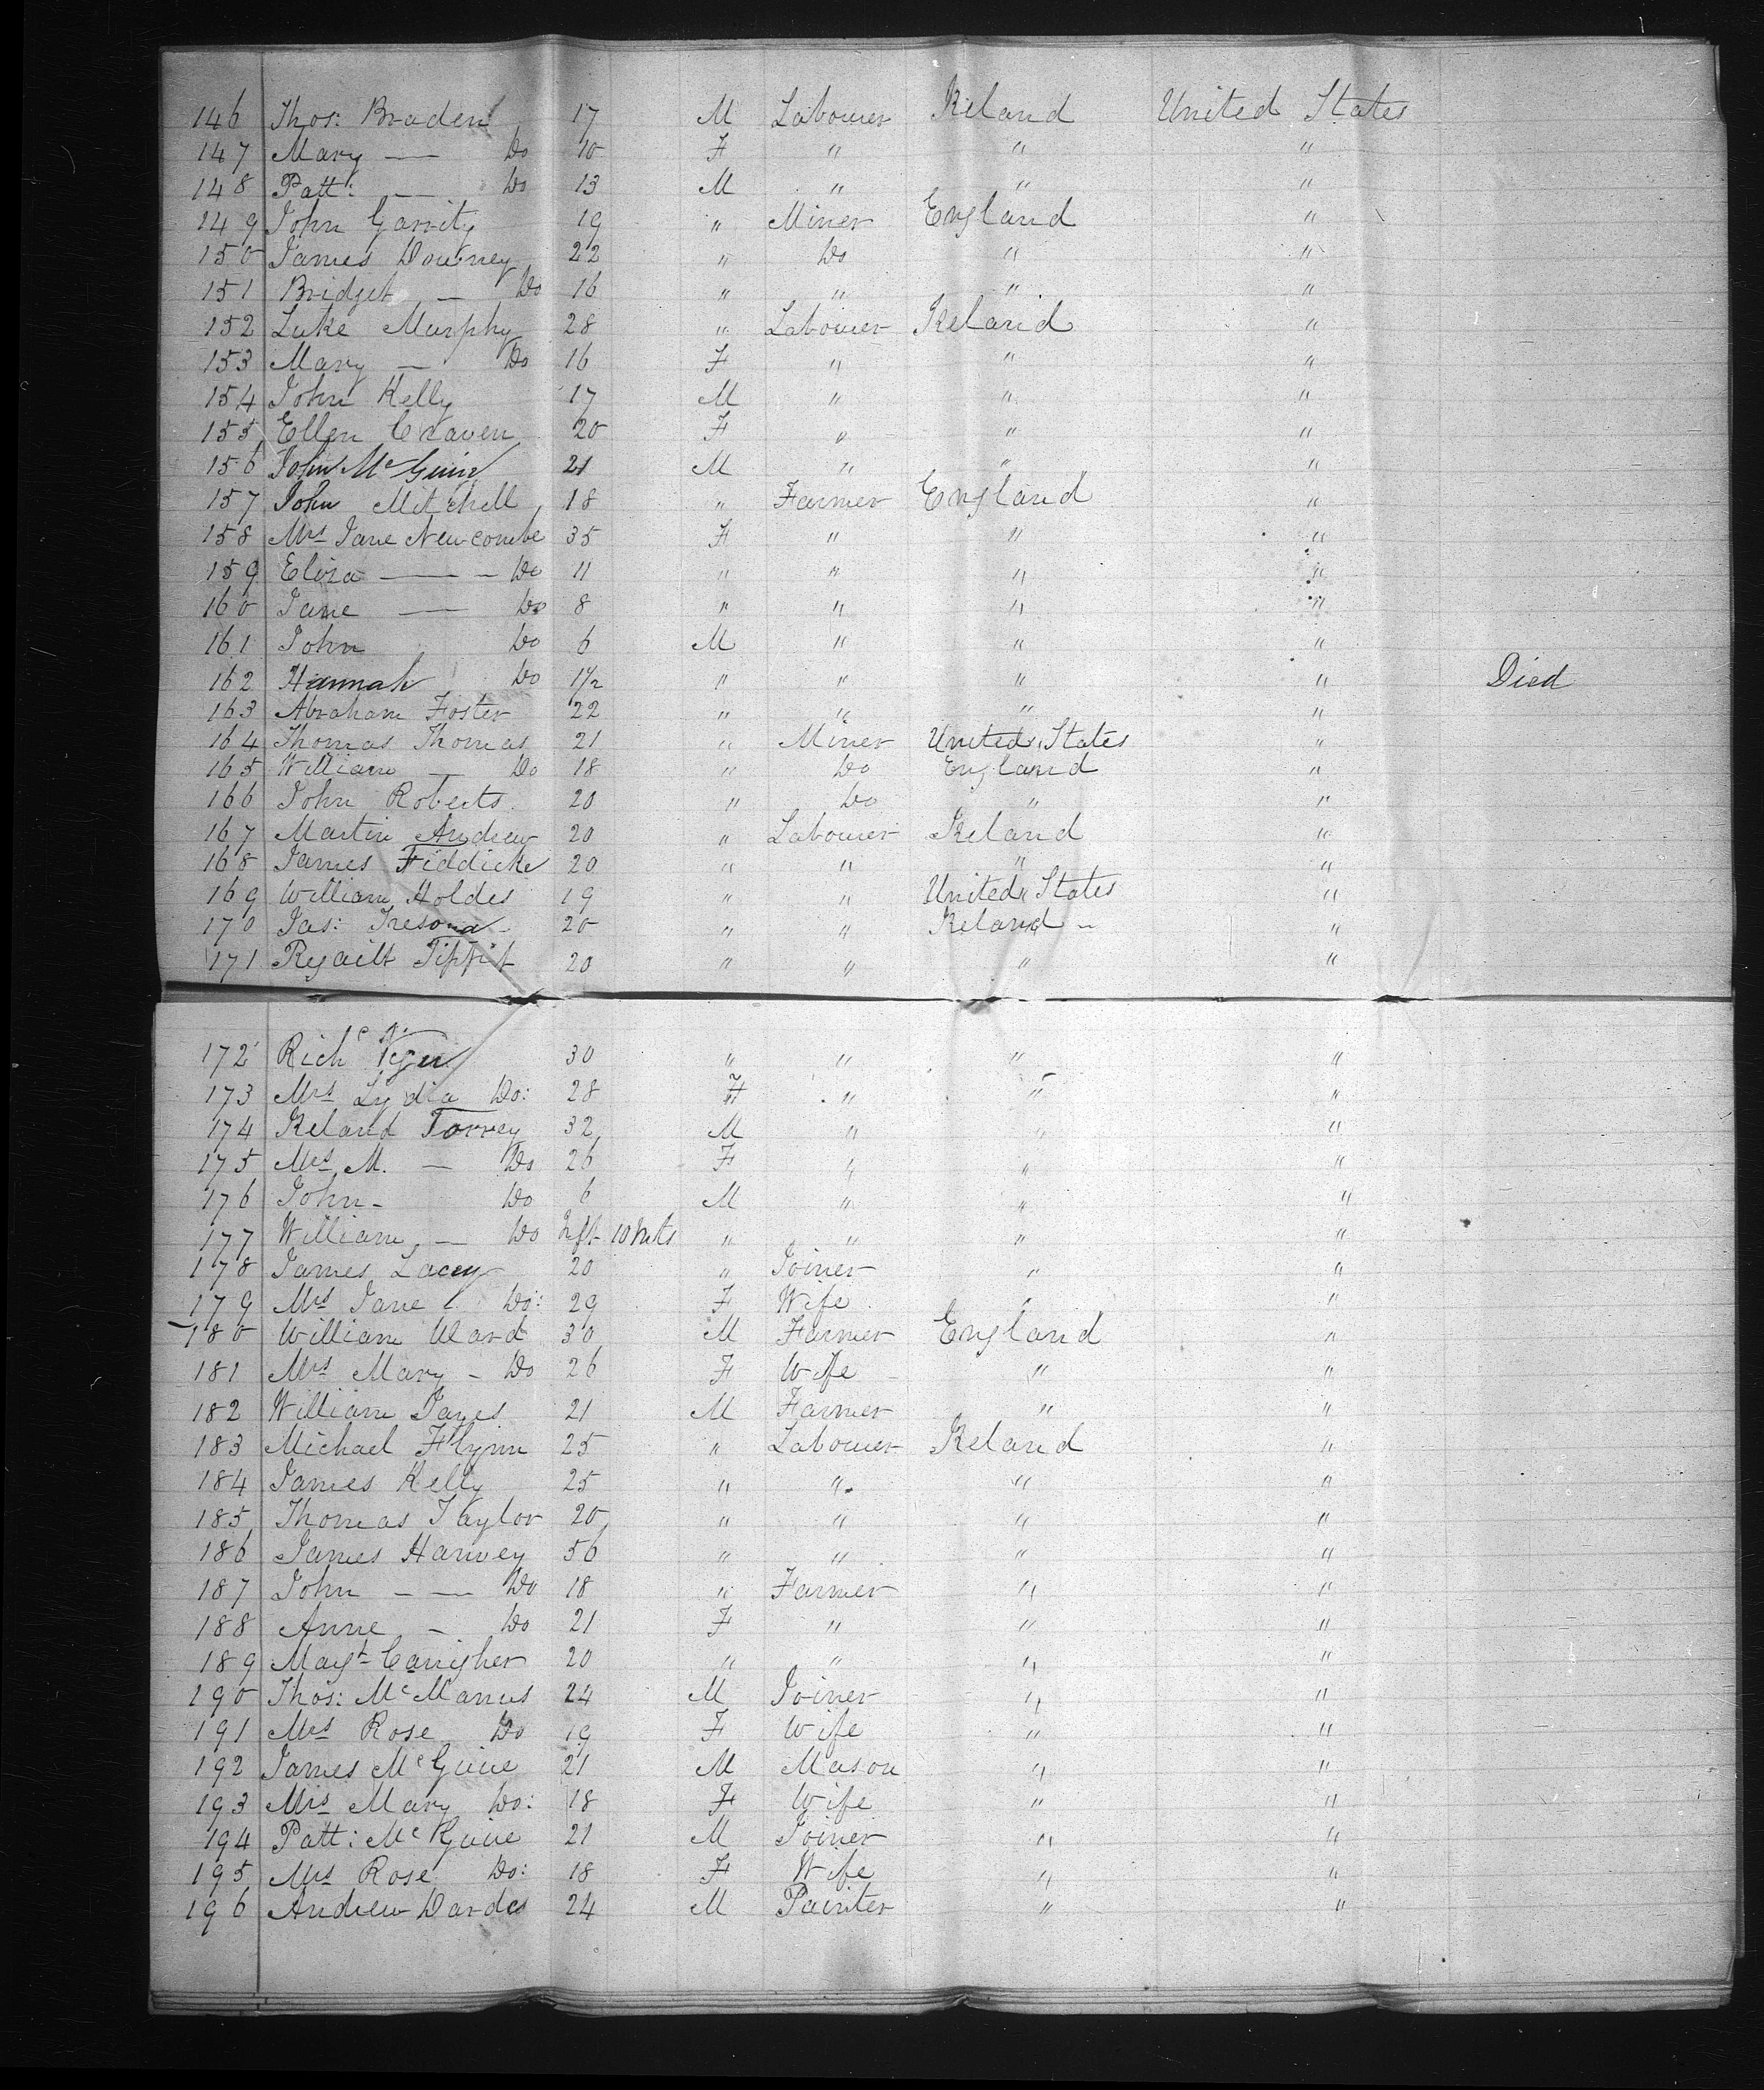 146 Thos: Braden 17 M Labourer Ireland United States
147 Mary — Do 10 F " " "
148 Patt: — Do 13 M " " "
149 John Garrity 19 " Miner England "
150 James Downey 22 " Do " "
151 Bridget — Do 16 " " " "
152 Luke Murphy 28 " Labourer Ireland "
153 Mary — Do 16 F " " "
154 John Kelly 17 M " " "
155 Ellen Craven 20 F " " "
156 John McGuire 21 M " " "
157 John Mitchell 18 " Farmer England "
158 Mrs Jane Newcombe 35 F " " "
159 Eliza — — Do 11 " " " "
160 Jane — Do 8 " " " "
161 John Do 6 M " " "
162 Hannah Do 1½ " " " " Died
163 Abraham Foster 22 " " " "
164 Thomas Thomas 21 " Miner United States "
165 William — Do 18 " Do England "
166 John Roberts 20 " Do " "
167 Martin Andrew 20 " Labourer Ireland "
168 James Fiddicke 20 " " " "
169 William Holdes 19 " " United States "
170 Jas: 20 " " Ireland "
171 Tippit 20 " " " "
172 Richd 30 " " " "
173 Mrs Lydia Do: 28 F " " "
174 Ireland Torrey 32 M " " "
175 Mrs M. — Do 26 F " " "
176 John - Do 6 M " " "
177 William — Do Inft 10 Mts " " " "
178 James Lacey 20 " Joiner " "
179 Mrs Jane Do: 29 F Wife " "
180 William Ward 30 M Farmer England "
181 Mrs Mary - Do 26 F Wife " "
182 William Janes 21 M Farmer " "
183 Michael Flynn 25 " Labourer Ireland "
184 James Kelly 25 " " " "
185 Thomas Taylor 20 " " " "
186 James Harvey 56 " " " "
187 John — — Do 18 " Farmer " "
188 Anne — Do 21 F " " "
189 Magt Carigher 20 " " " "
190 Thos: McManus 24 M Joiner " "
191 Mrs Rose Do 19 F Wife " "
192 James McGuire 21 M Mason " "
193 Mrs Mary Do: 18 F Wife " "
194 Patt: McGuire 21 M Joiner " "
195 Mrs Rose Do: 18 F Wife " "
196 Andrew Dardes 24 M Painter " "